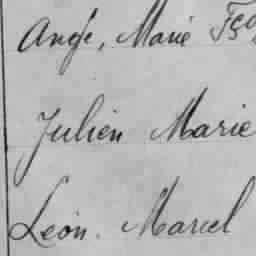 Ange, Marie Fço
Julien Marie
Léon. Marcel